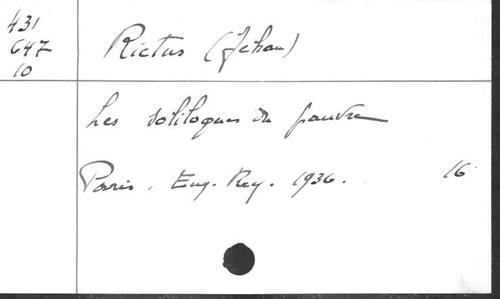 431
647
10
Rictus (Jehan)
Les soliloques du pauvre
Paris. Eug. Rey. 1936. 16